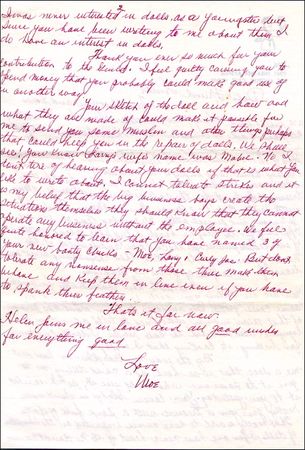 I was never interested in dolls as a youngster but
since you have been writing to me about them I
do have an interest in dolls.
Thank you ever so much for your
contribution to the . I feel guilty causing you to
send money that you probably could make good use of
in another way.
Your sketch of the doll and how and
what they are made of could make it possible for
me to send you some muslin and other things perhaps
that could help you in the repair of dolls. We
, you know Larry's wife's name was Mabel. No I
don't tire of hearing about your dolls if that is what you
like to write about. I cannot tolerate strikes and it
is my belief that the big business boys create the
situation themselves they should know that they cannot
operate any business without the employee. We feel
quite honored to learn that you have named 3 of
your new banty chicks - Moe, Larry & Curly Joe. But don't
tolerate any nonsense from those three make them
behave and keep them in line even if you have
to spank their feathers.
That's it for now.
Helen joins me in love and all good wishes
for everything good
Love
Moe